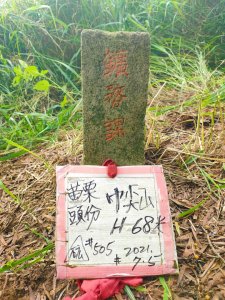 鑛務課
苗栗
頭份
中尖山
H 68米
#505
2021.
7.5